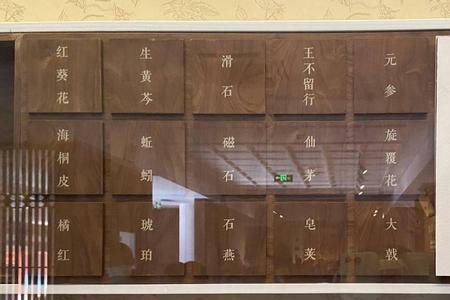 红葵花
生黄芩
滑石
王不留行
元参
海桐皮
蚯蚓
磁石
仙茅
旋覆花
橘红
琥珀
石燕
皂荚
大戟